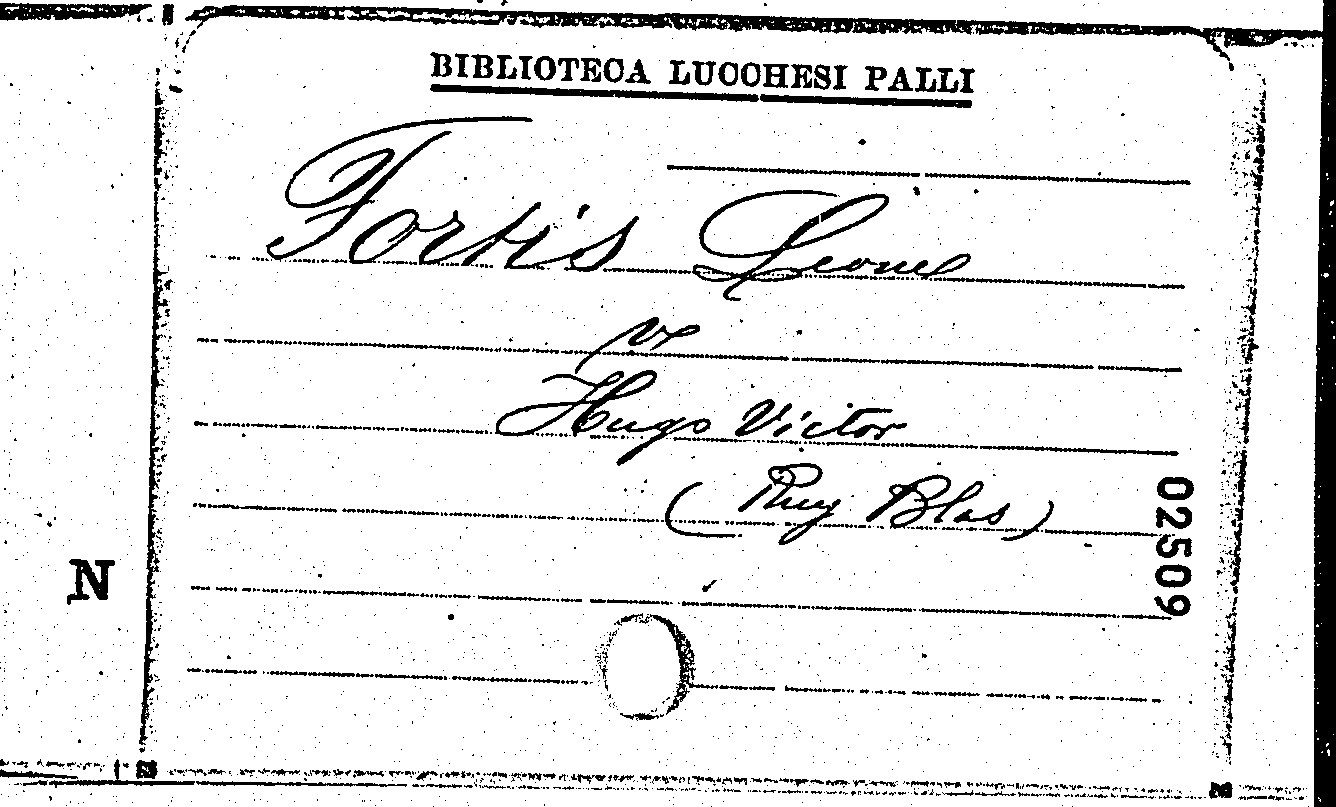 BIBLIOTECA LUCCHESI PALLI
Fortis Leone
v.
Hugo Victor
(Ruy Blas)
02509
N